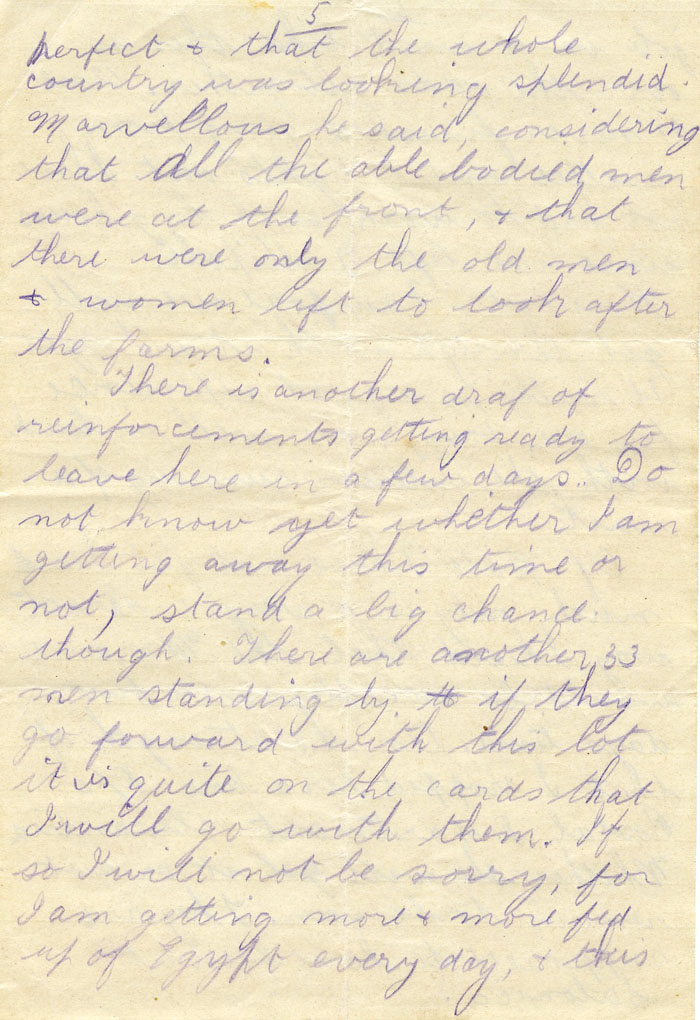 5
perfect & that the whole
country was looking splendid.
Marvellous he said, considering
that all the able bodied men
were at the front, & that
there were only the old men
& women left to look after
the farms.
There is another draf of
reinforcements getting ready to
leave here in a few days.. Do
not know yet whether I am
getting away this time or
not, stand a big chance
though. There are another 33
men standing by if they
go forward with this lot
it is quite on the cards that
I will go with them. If
so I will not be sorry, for
I am getting more & more fed
up of Egypt every day, & this